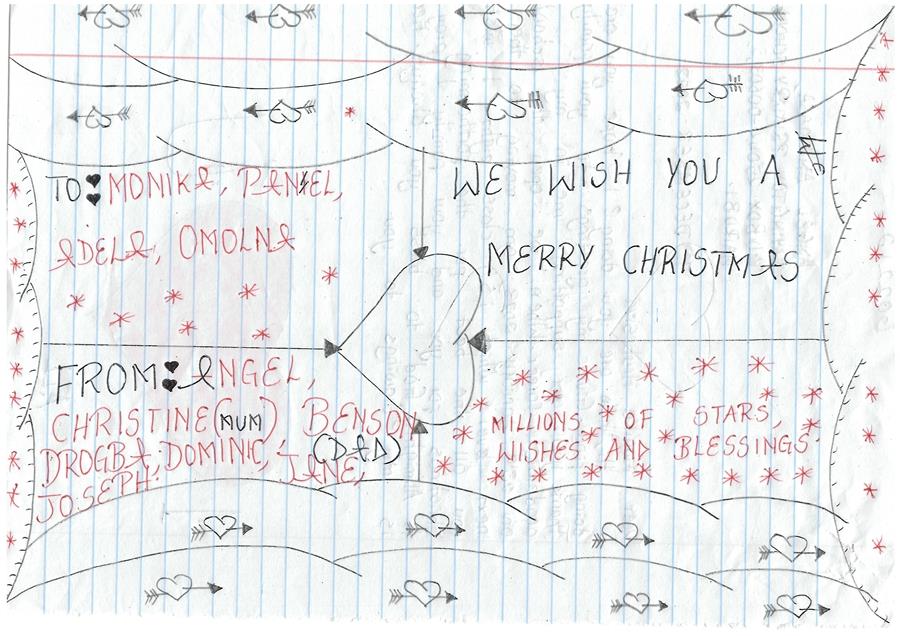 TO: MONIKA, DANIEL,
ADELA, OMOLNA
WE WISH YOU A
MERRY CHRISTMAS
FROM: ANGEL,
CHRISTINE (MUM) BENSON
(DAD)
DROGBA, DOMINIC, JANE,
JOSEPH.
MILLIONS OF STARS,
WISHES AND BLESSINGS